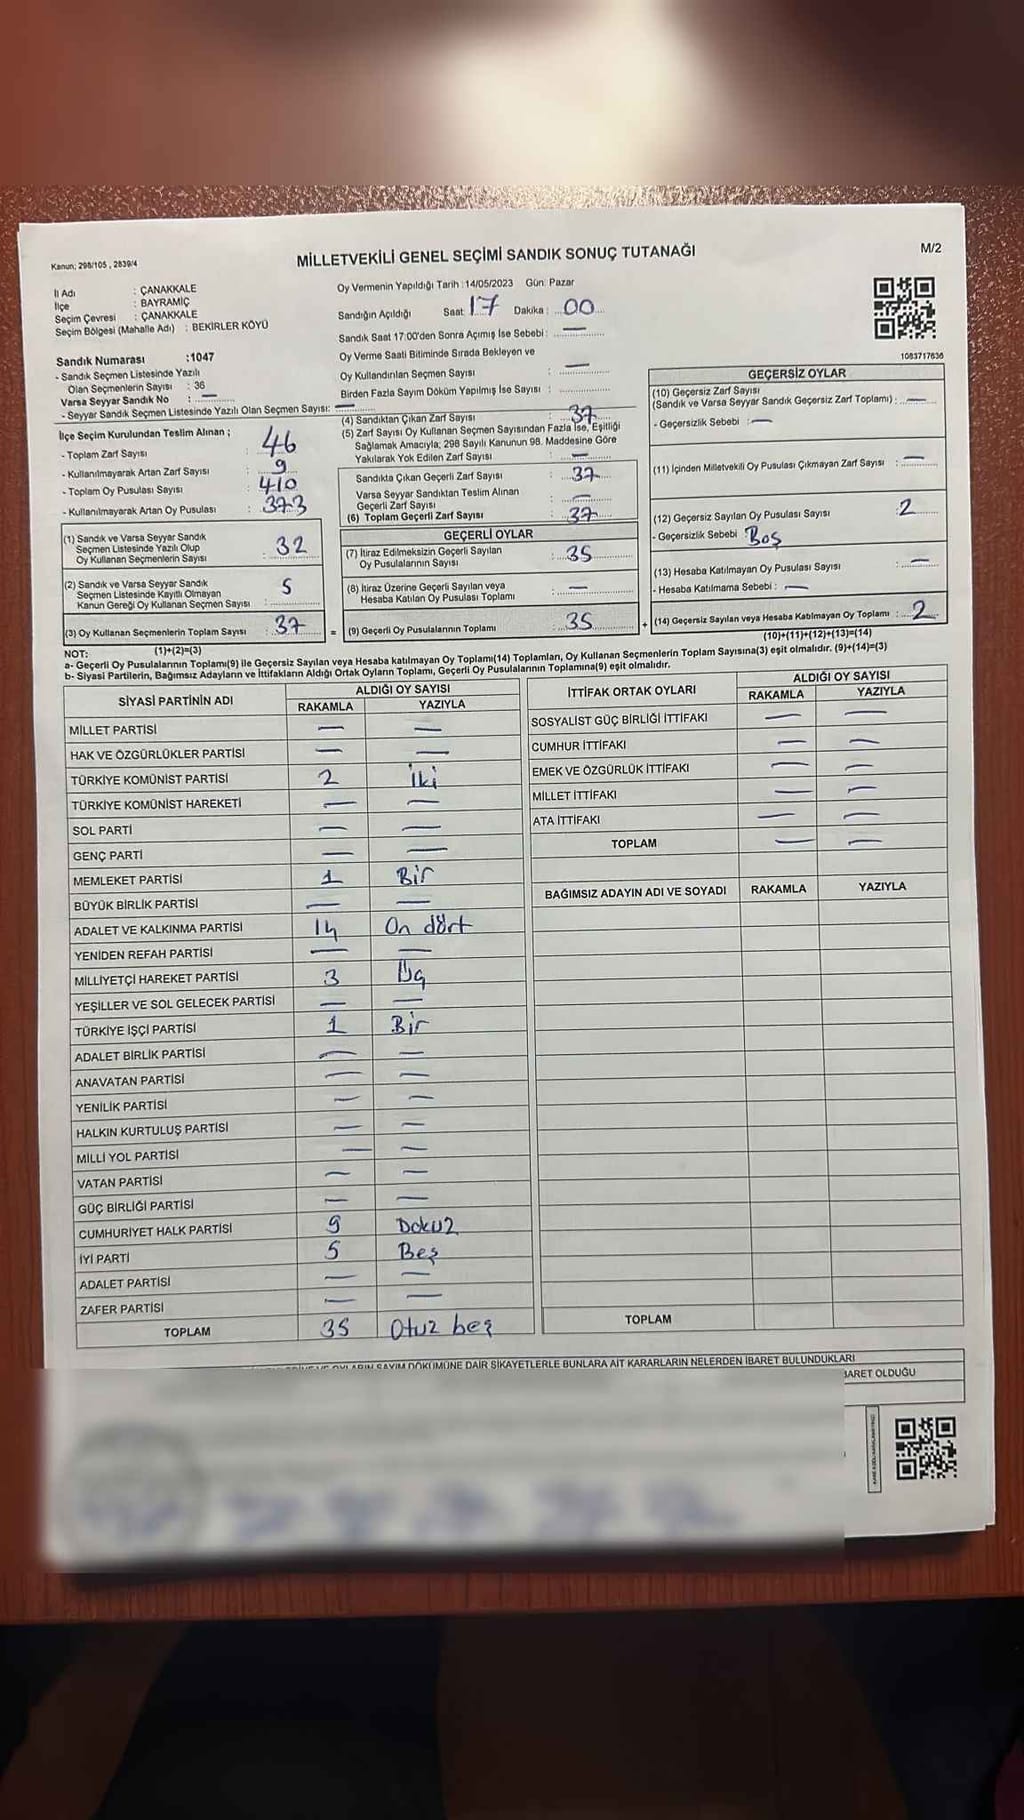 Kanun; 298/105 , 2839/4
MİLLETVEKİLİ GENEL SEÇİMİ SANDIK SONUÇ TUTANAĞI
M/2
İl Adı : ÇANAKKALE
İlçe : BAYRAMİÇ
Seçim Çevresi : ÇANAKKALE
Seçim Bölgesi (Mahalle Adı) : BEKİRLER KÖYÜ
Sandık Numarası :1047
- Sandık Seçmen Listesinde Yazılı
Olan Seçmenlerin Sayısı : 36
Varsa Seyyar Sandık No : —
- Seyyar Sandık Seçmen Listesinde Yazılı Olan Seçmen Sayısı: —
Oy Vermenin Yapıldığı Tarih :14/05/2023 Gün: Pazar
Sandığın Açıldığı Saat: 17 Dakika : 00
Sandık Saat 17:00'den Sonra Açımış İse Sebebi : —
Oy Verme Saati Bitiminde Sırada Bekleyen ve
Oy Kullandırılan Seçmen Sayısı : —
Birden Fazla Sayım Döküm Yapılmış İse Sayısı :
1083717636
İlçe Seçim Kurulundan Teslim Alınan ;
- Toplam Zarf Sayısı : 46
- Kullanılmayarak Artan Zarf Sayısı : 9
- Toplam Oy Pusulası Sayısı : 410
- Kullanılmayarak Artan Oy Pusulası : 373
(1) Sandık ve Varsa Seyyar Sandık
Seçmen Listesinde Yazılı Olup
Oy Kullanan Seçmenlerin Sayısı : 32
(2) Sandık ve Varsa Seyyar Sandık
Seçmen Listesinde Kayıtlı Olmayan
Kanun Gereği Oy Kullanan Seçmen Sayısı : 5
(3) Oy Kullanan Seçmenlerin Toplam Sayısı : 37
(4) Sandıktan Çıkan Zarf Sayısı : 37
(5) Zarf Sayısı Oy Kullanan Seçmen Sayısından Fazla İse, Eşitliği
Sağlamak Amacıyla; 298 Sayılı Kanunun 98. Maddesine Göre
Yakılarak Yok Edilen Zarf Sayısı : —
Sandıkta Çıkan Geçerli Zarf Sayısı : 37
Varsa Seyyar Sandıktan Teslim Alınan
Geçerli Zarf Sayısı : —
(6) Toplam Geçerli Zarf Sayısı : 37
GEÇERLİ OYLAR
(7) İtiraz Edilmeksizin Geçerli Sayılan
Oy Pusulalarının Sayısı : 35
(8) İtiraz Üzerine Geçerli Sayılan veya
Hesaba Katılan Oy Pusulası Toplamı : —
= (9) Geçerli Oy Pusulalarının Toplamı : 35
GEÇERSİZ OYLAR
(10) Geçersiz Zarf Sayısı
(Sandık ve Varsa Seyyar Sandık Geçersiz Zarf Toplamı) : —
- Geçersizlik Sebebi : —
(11) İçinden Milletvekili Oy Pusulası Çıkmayan Zarf Sayısı : —
(12) Geçersiz Sayılan Oy Pusulası Sayısı : 2
- Geçersizlik Sebebi : Boş
(13) Hesaba Katılmayan Oy Pusulası Sayısı : —
- Hesaba Katılmama Sebebi : —
+ (14) Geçersiz Sayılan veya Hesaba Katılmayan Oy Toplamı : 2
NOT: (1)+(2)=(3) (10)+(11)+(12)+(13)=(14)
a- Geçerli Oy Pusulalarının Toplamı(9) ile Geçersiz Sayılan veya Hesaba katılmayan Oy Toplamı(14) Toplamları, Oy Kullanan Seçmenlerin Toplam Sayısına(3) eşit olmalıdır. (9)+(14)=(3)
b- Siyasi Partilerin, Bağımsız Adayların ve İttifakların Aldığı Ortak Oyların Toplamı, Geçerli Oy Pusulalarının Toplamına(9) eşit olmalıdır.
SİYASİ PARTİNİN ADI ALDIĞI OY SAYISI
RAKAMLA YAZIYLA
MİLLET PARTİSİ — —
HAK VE ÖZGÜRLÜKLER PARTİSİ — —
TÜRKİYE KOMÜNİST PARTİSİ 2 İki
TÜRKİYE KOMÜNİST HAREKETİ — —
SOL PARTİ — —
GENÇ PARTİ — —
MEMLEKET PARTİSİ 1 Bir
BÜYÜK BİRLİK PARTİSİ — —
ADALET VE KALKINMA PARTİSİ 14 On dört
YENİDEN REFAH PARTİSİ — —
MİLLİYETÇİ HAREKET PARTİSİ 3 Üç
YEŞİLLER VE SOL GELECEK PARTİSİ — —
TÜRKİYE İŞÇİ PARTİSİ 1 Bir
ADALET BİRLİK PARTİSİ — —
ANAVATAN PARTİSİ — —
YENİLİK PARTİSİ — —
HALKIN KURTULUŞ PARTİSİ — —
MİLLİ YOL PARTİSİ — —
VATAN PARTİSİ — —
GÜÇ BİRLİĞİ PARTİSİ — —
CUMHURİYET HALK PARTİSİ 9 Dokuz
İYİ PARTİ 5 Beş
ADALET PARTİSİ — —
ZAFER PARTİSİ — —
TOPLAM 35 Otuz beş
İTTİFAK ORTAK OYLARI ALDIĞI OY SAYISI
RAKAMLA YAZIYLA
SOSYALİST GÜÇ BİRLİĞİ İTTİFAKI — —
CUMHUR İTTİFAKI — —
EMEK VE ÖZGÜRLÜK İTTİFAKI — —
MİLLET İTTİFAKI — —
ATA İTTİFAKI — —
TOPLAM — —
BAĞIMSIZ ADAYIN ADI VE SOYADI RAKAMLA YAZIYLA
TOPLAM
OYLARIN SAYIM DÖKÜMÜNE DAİR ŞİKAYETLERLE BUNLARA AİT KARARLARIN NELERDEN İBARET BULUNDUKLARI
OLDUĞU